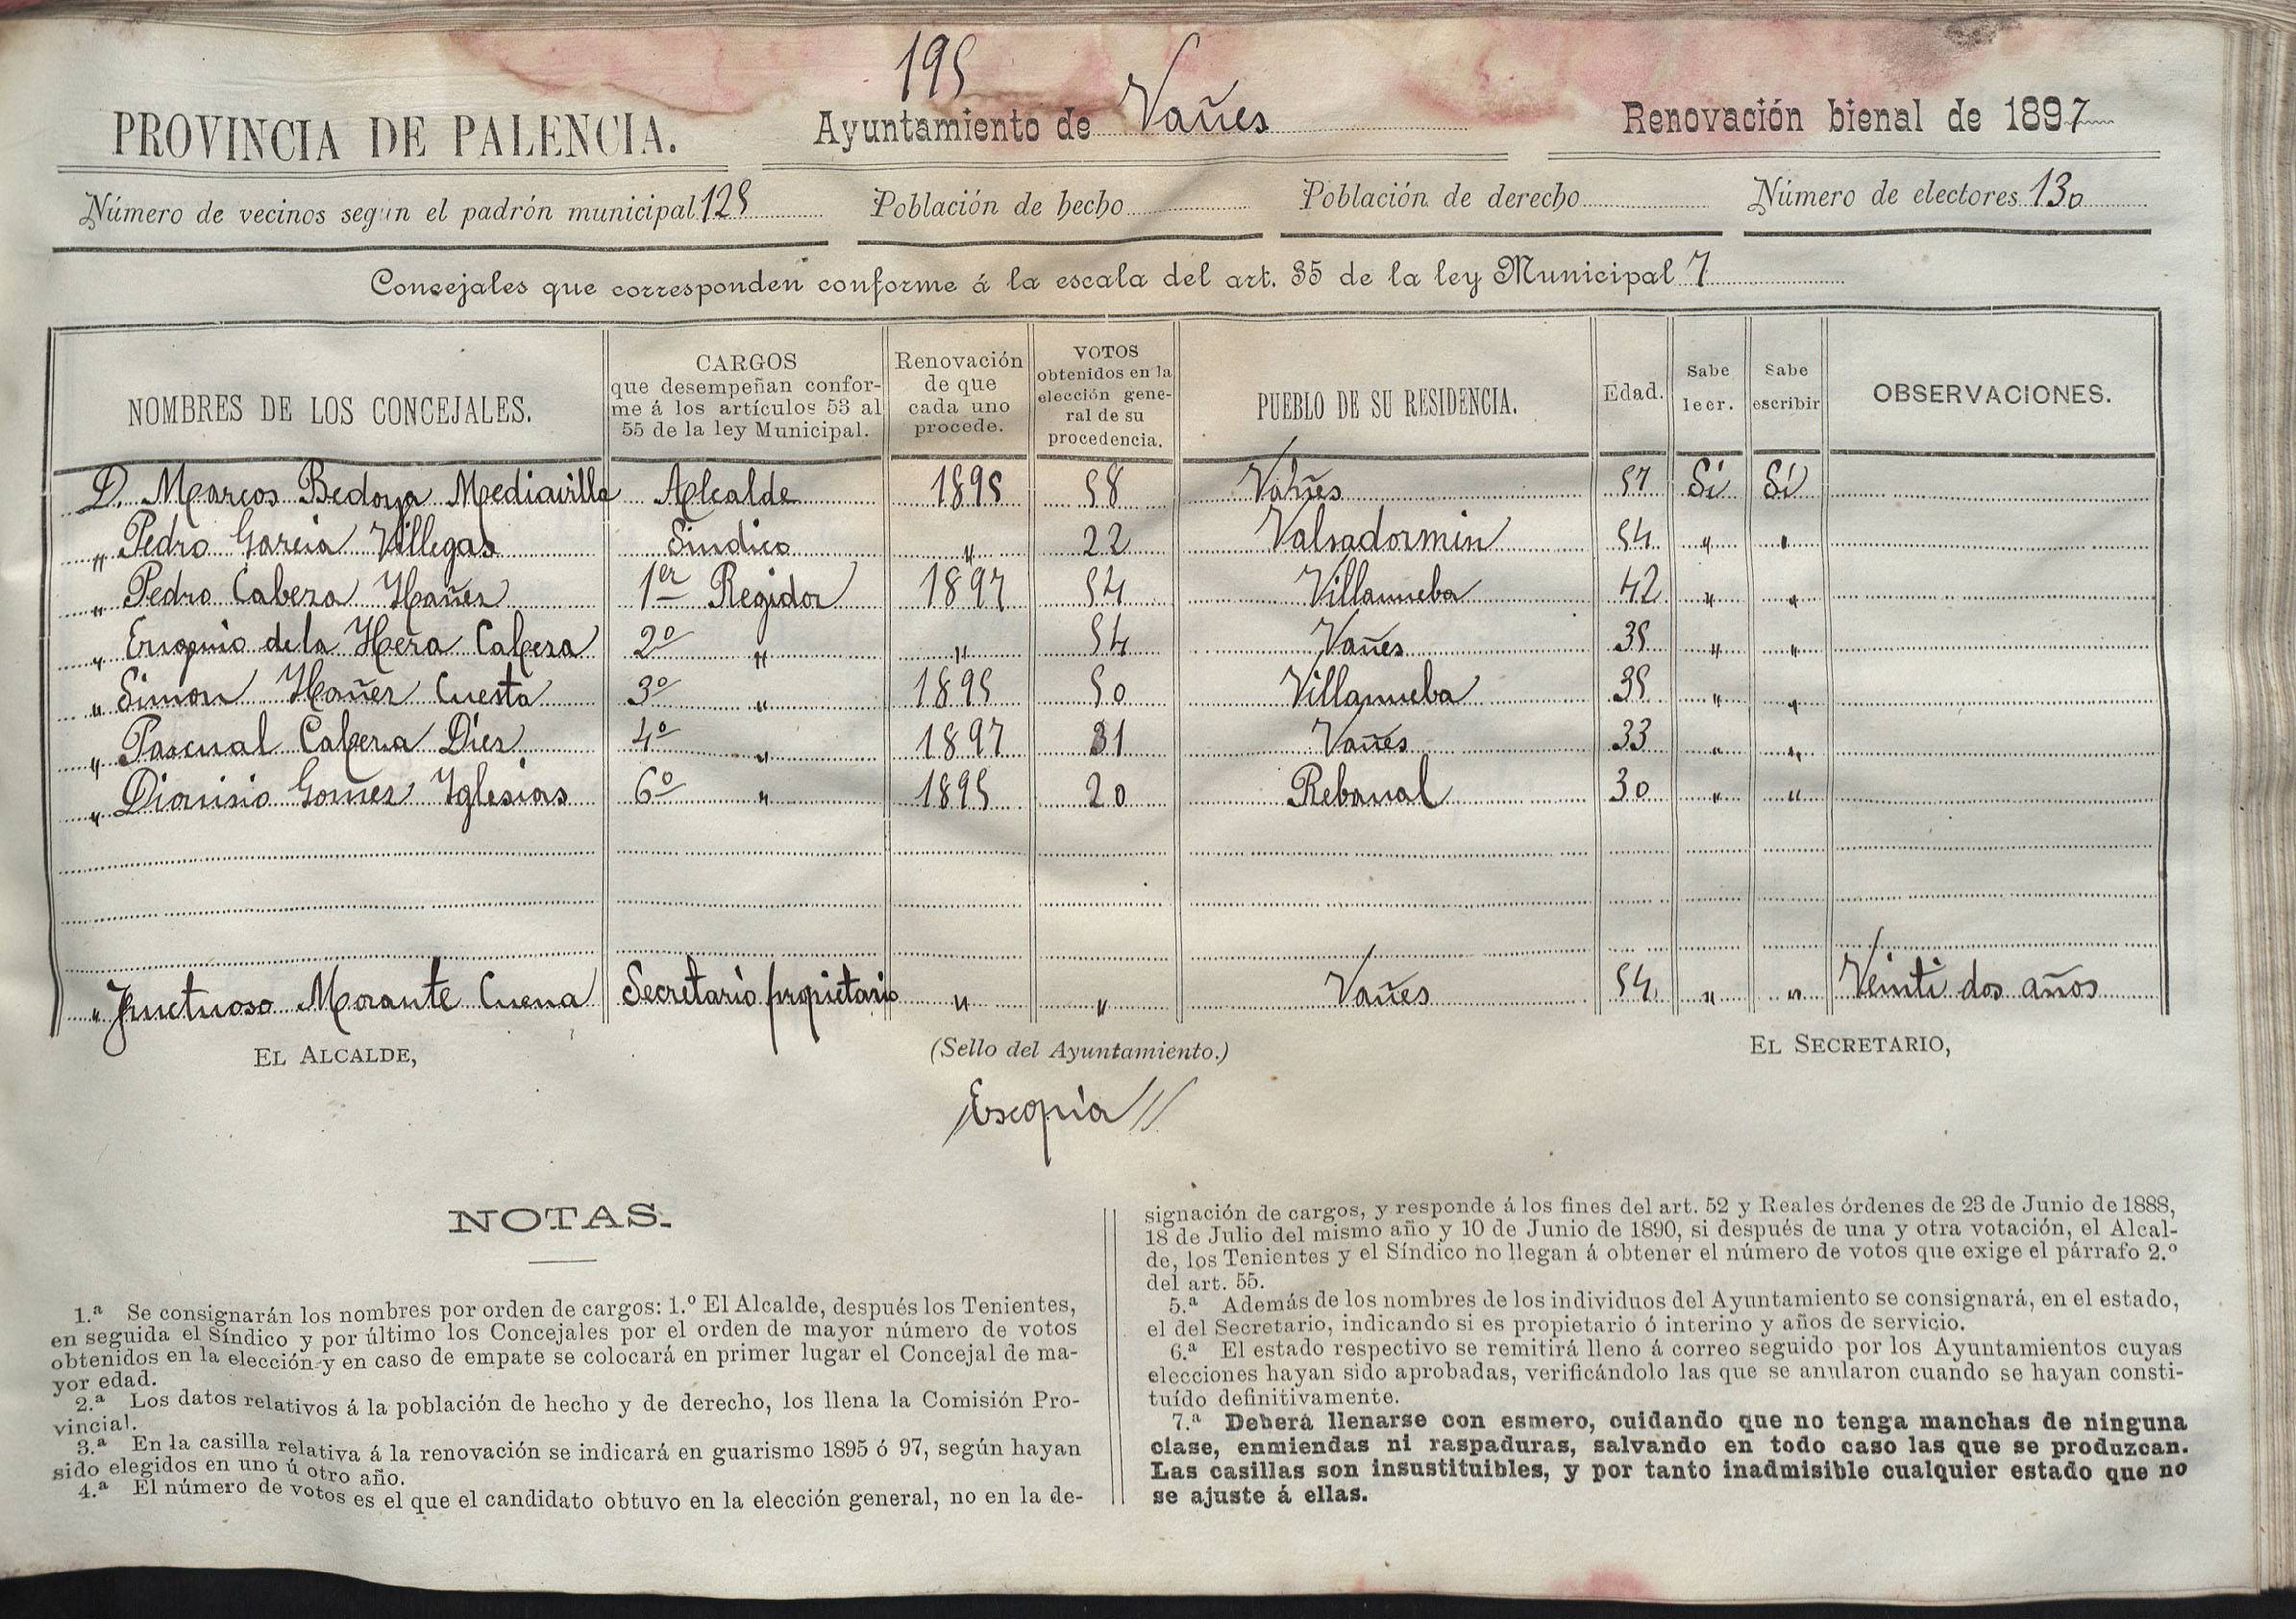 195
PROVINCIA DE PALENCIA. Ayuntamiento de Vañes Renovación bienal de 1897
Número de vecinos según el padrón municipal 125 Población de hecho Población de derecho Número de electores 130
Concejales que corresponden conforme á la escala del art. 35 de la ley Municipal 7
NOMBRES DE LOS CONCEJALES. CARGOS que desempeñan confor-me á los artículos 53 al 55 de la ley Municipal. Renovación de que cada uno procede. VOTOS obtenidos en la elección gene-ral de su procedencia. PUEBLO DE SU RESIDENCIA. Edad. Sabe leer. Sabe escribir OBSERVACIONES.
D. Marcos Bedoya Mediavilla Alcalde 1895 58 Vañes 57 Sí Sí
" Pedro Garcia Villegas Sindico " 22 Valsadormin 54 " "
" Pedro Cabeza Ybañez 1er Regidor 1897 54 Villanueba 42 " "
" Eugenio de la Hera Cabeza 2º " " 54 Vañes 35 " "
" Simon Ybañez Cuesta 3º " 1895 50 Villanueba 35 " "
" Pascual Cabeza Diez 4º " 1897 31 Vañes 33 " "
" Dionisio Gomez Yglesias 6º " 1895 20 Rebanal 30 " "
" Fructuoso Morante Cuena Secretario propietario " " Vañes 54 " " Veinti dos años
EL ALCALDE, (Sello del Ayuntamiento.) EL SECRETARIO,
Es copia //
NOTAS.
1.ª Se consignarán los nombres por orden de cargos: 1.º El Alcalde, después los Tenientes,
en seguida el Síndico y por último los Concejales por el orden de mayor número de votos
obtenidos en la elección y en caso de empate se colocará en primer lugar el Concejal de ma-
yor edad.
2.ª Los datos relativos á la población de hecho y de derecho, los llena la Comisión Pro-
vincial.
3.ª En la casilla relativa á la renovación se indicará en guarismo 1895 ó 97, según hayan
sido elegidos en uno ú otro año.
4.ª El número de votos es el que el candidato obtuvo en la elección general, no en la de-
signación de cargos, y responde á los fines del art. 52 y Reales órdenes de 23 de Junio de 1888,
18 de Julio del mismo año y 10 de Junio de 1890, si después de una y otra votación, el Alcal-
de, los Tenientes y el Síndico no llegan á obtener el número de votos que exige el párrafo 2.º
del art. 55.
5.ª Además de los nombres de los individuos del Ayuntamiento se consignará, en el estado,
el del Secretario, indicando si es propietario ó interino y años de servicio.
6.ª El estado respectivo se remitirá lleno á correo seguido por los Ayuntamientos cuyas
elecciones hayan sido aprobadas, verificándolo las que se anularon cuando se hayan consti-
tuído definitivamente.
7.ª Deberá llenarse con esmero, cuidando que no tenga manchas de ninguna
clase, enmiendas ni raspaduras, salvando en todo caso las que se produzcan.
Las casillas son insustituibles, y por tanto inadmisible cualquier estado que no
se ajuste á ellas.